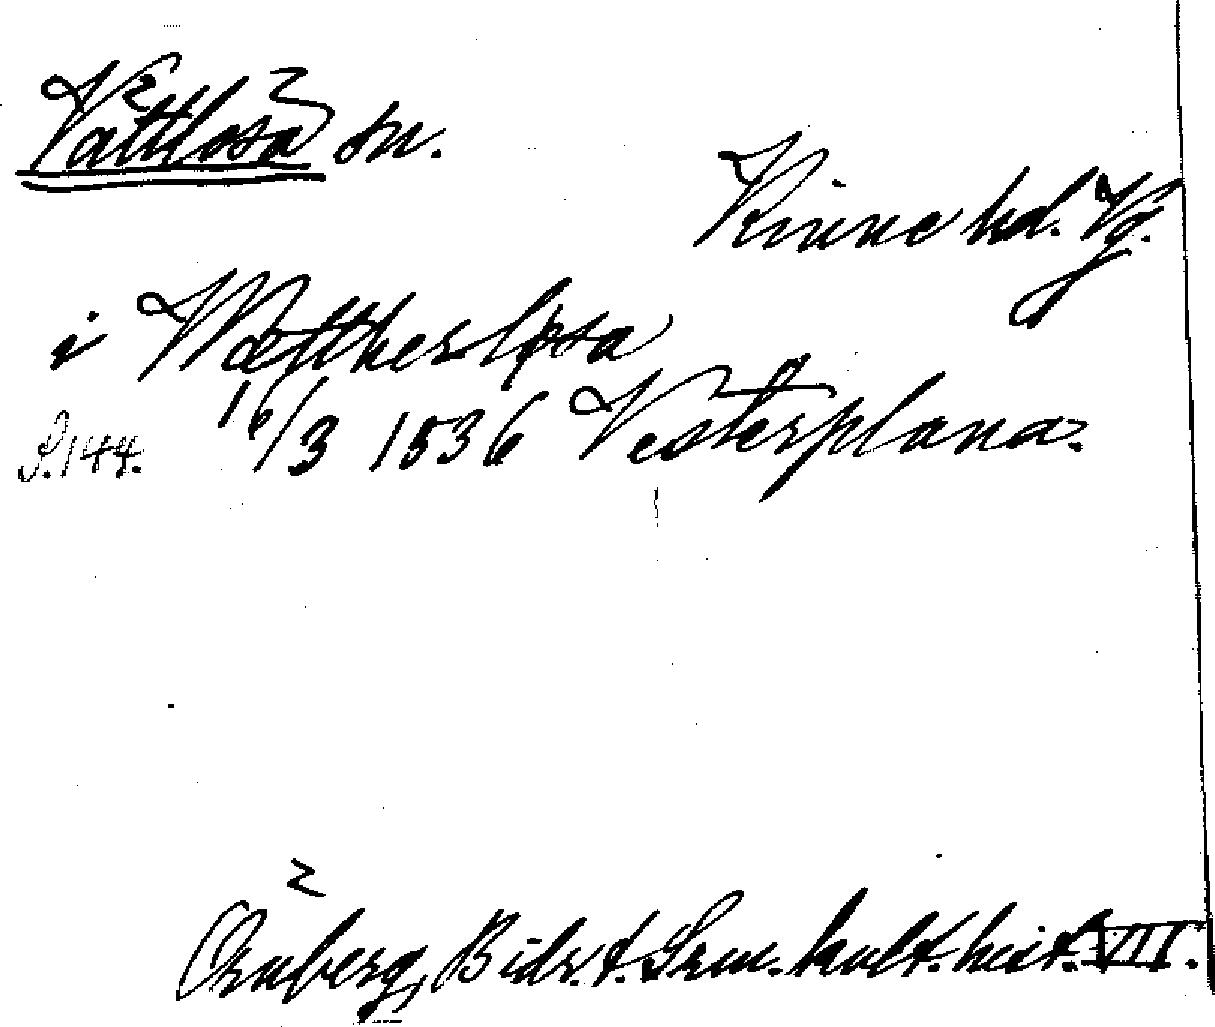 Vättlösa sn.
Kinne hd. Vg.
i Wættherløsa
S. 144. 16/3 1536 Vesterplana.
Örnberg, Bidr. t. Sven. kult. hist. VII.